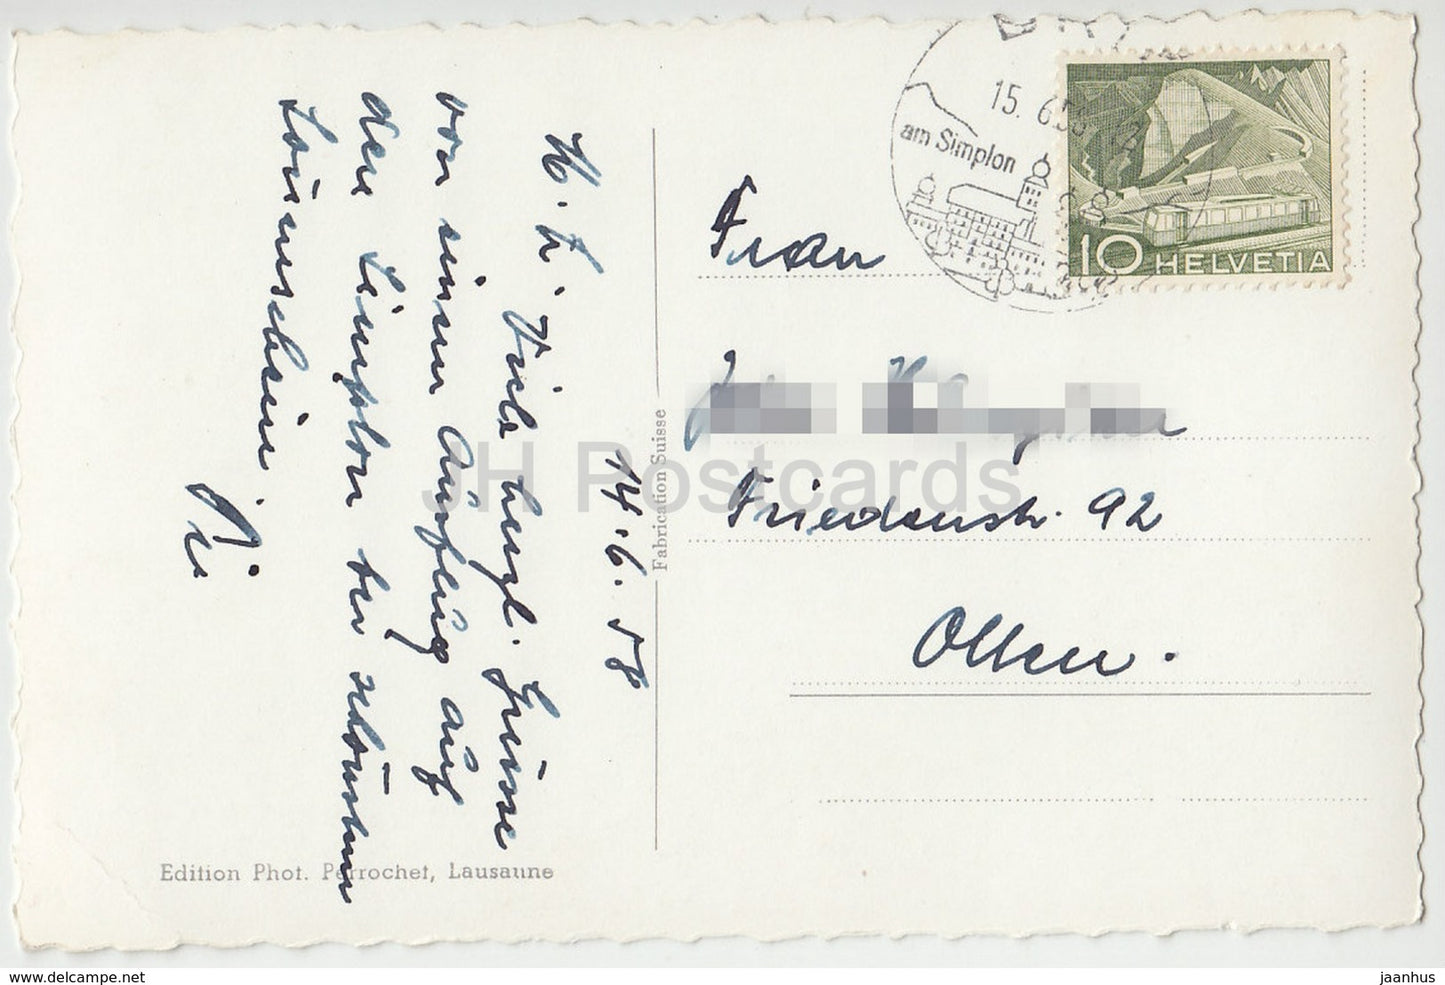 14.6.58
Viele herzl. Grüsse
von einem Ausflug auf
den Simplon bei schönstem
Sonnenschein.
Edition Phot. Perrochet, Lausanne
Fabrication Suisse
15. 6.58
am Simplon
10 HELVETIA
Frau
Friedenstr. 92
Olten.
JH Postcards
www.delcampe.net
jaanhus